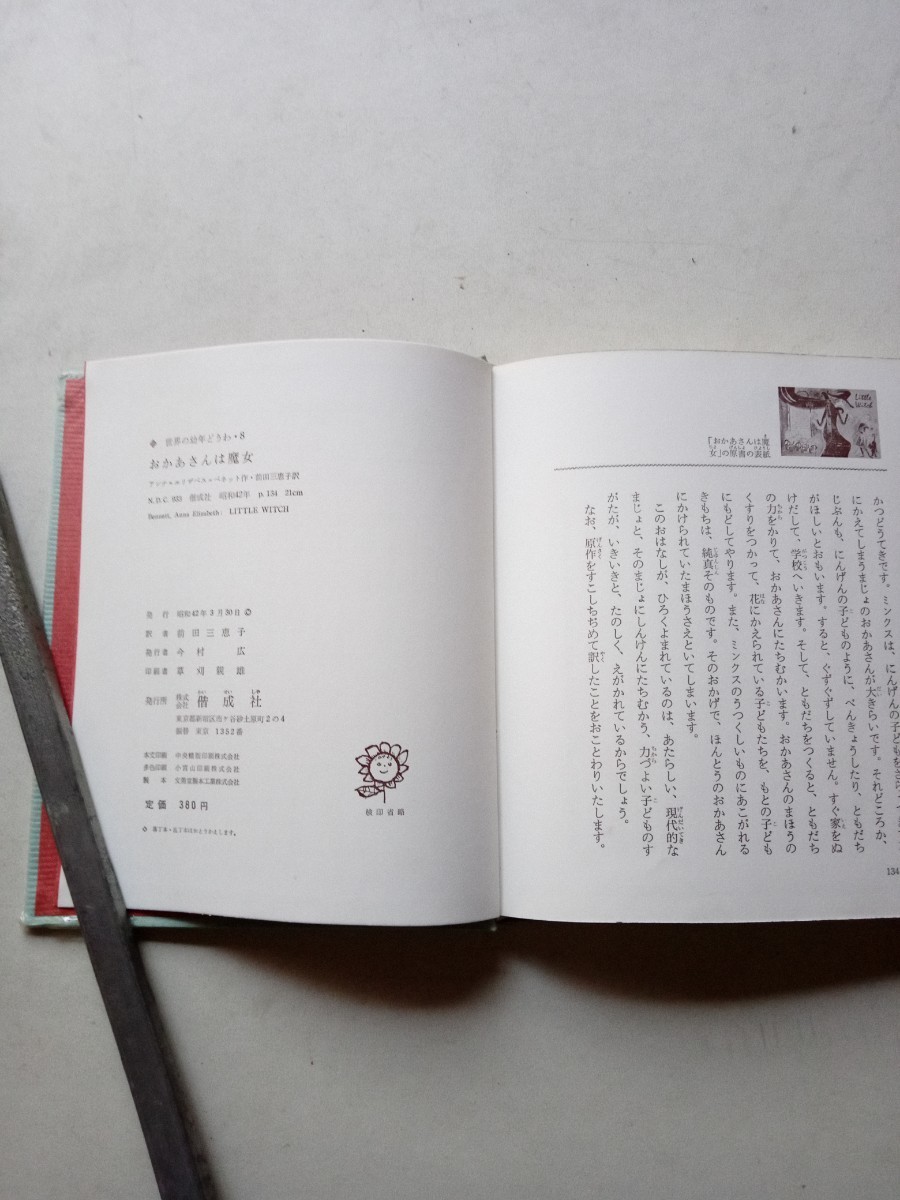 世界の幼年どうわ・8
おかあさんは魔女
アンナ=エリザベス=ベネット作・前田三恵子訳
N.D.C. 933 偕成社 昭和42年 p.134 21cm
Bennett, Anna Elizabeth: LITTLE WITCH
発行 昭和42年3月30日 ©
訳者 前田三恵子
発行者 今村広
印刷者 草刈親雄
発行所 株式会社 偕成社
かいせいしゃ
東京都新宿区市ヶ谷砂土原町2の4
振替 東京 1352番
本文印刷 中央精版印刷株式会社
多色印刷 小宮山印刷株式会社
製本 文勇堂製本工業株式会社
定価 380円
落丁本・乱丁本はおとりかえします。
検印省略
「おかあさんは魔
女」の原書の表紙
Little Witch
にかえてしまうまじょのおかあさんが大きらいです。それどころか、
じぶんも、にんげんの子どものように、べんきょうしたり、ともだち
がほしいとおもいます。すると、ぐずぐずしていません。すぐ家をぬ
けだして、学校へいきます。そして、ともだちをつくると、ともだち
の力をかりて、おかあさんにたちむかいます。おかあさんのまほうの
くすりをつかって、花にかえられている子どもたちを、もとの子ども
にもどしてやります。また、ミンクスのうつくしいものにあこがれる
きもちは、純真そのものです。そのおかげで、ほんとうのおかあさん
にかけられていたまほうさえといてしまいます。
このおはなしが、ひろくよまれているのは、あたらしい、現代的な
まじょと、そのまじょにしんけんにたちむかう、力づよい子どものす
がたが、いきいきと、たのしく、えがかれているからでしょう。
なお、原作をすこしちぢめて訳したことをおことわりいたします。
134